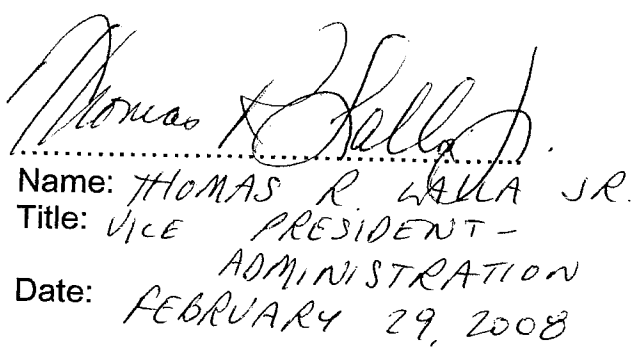 Thomas R. Walla Jr.
Name: THOMAS R. WALLA JR.
Title: VICE PRESIDENT-
ADMINISTRATION
Date: FEBRUARY 29, 2008